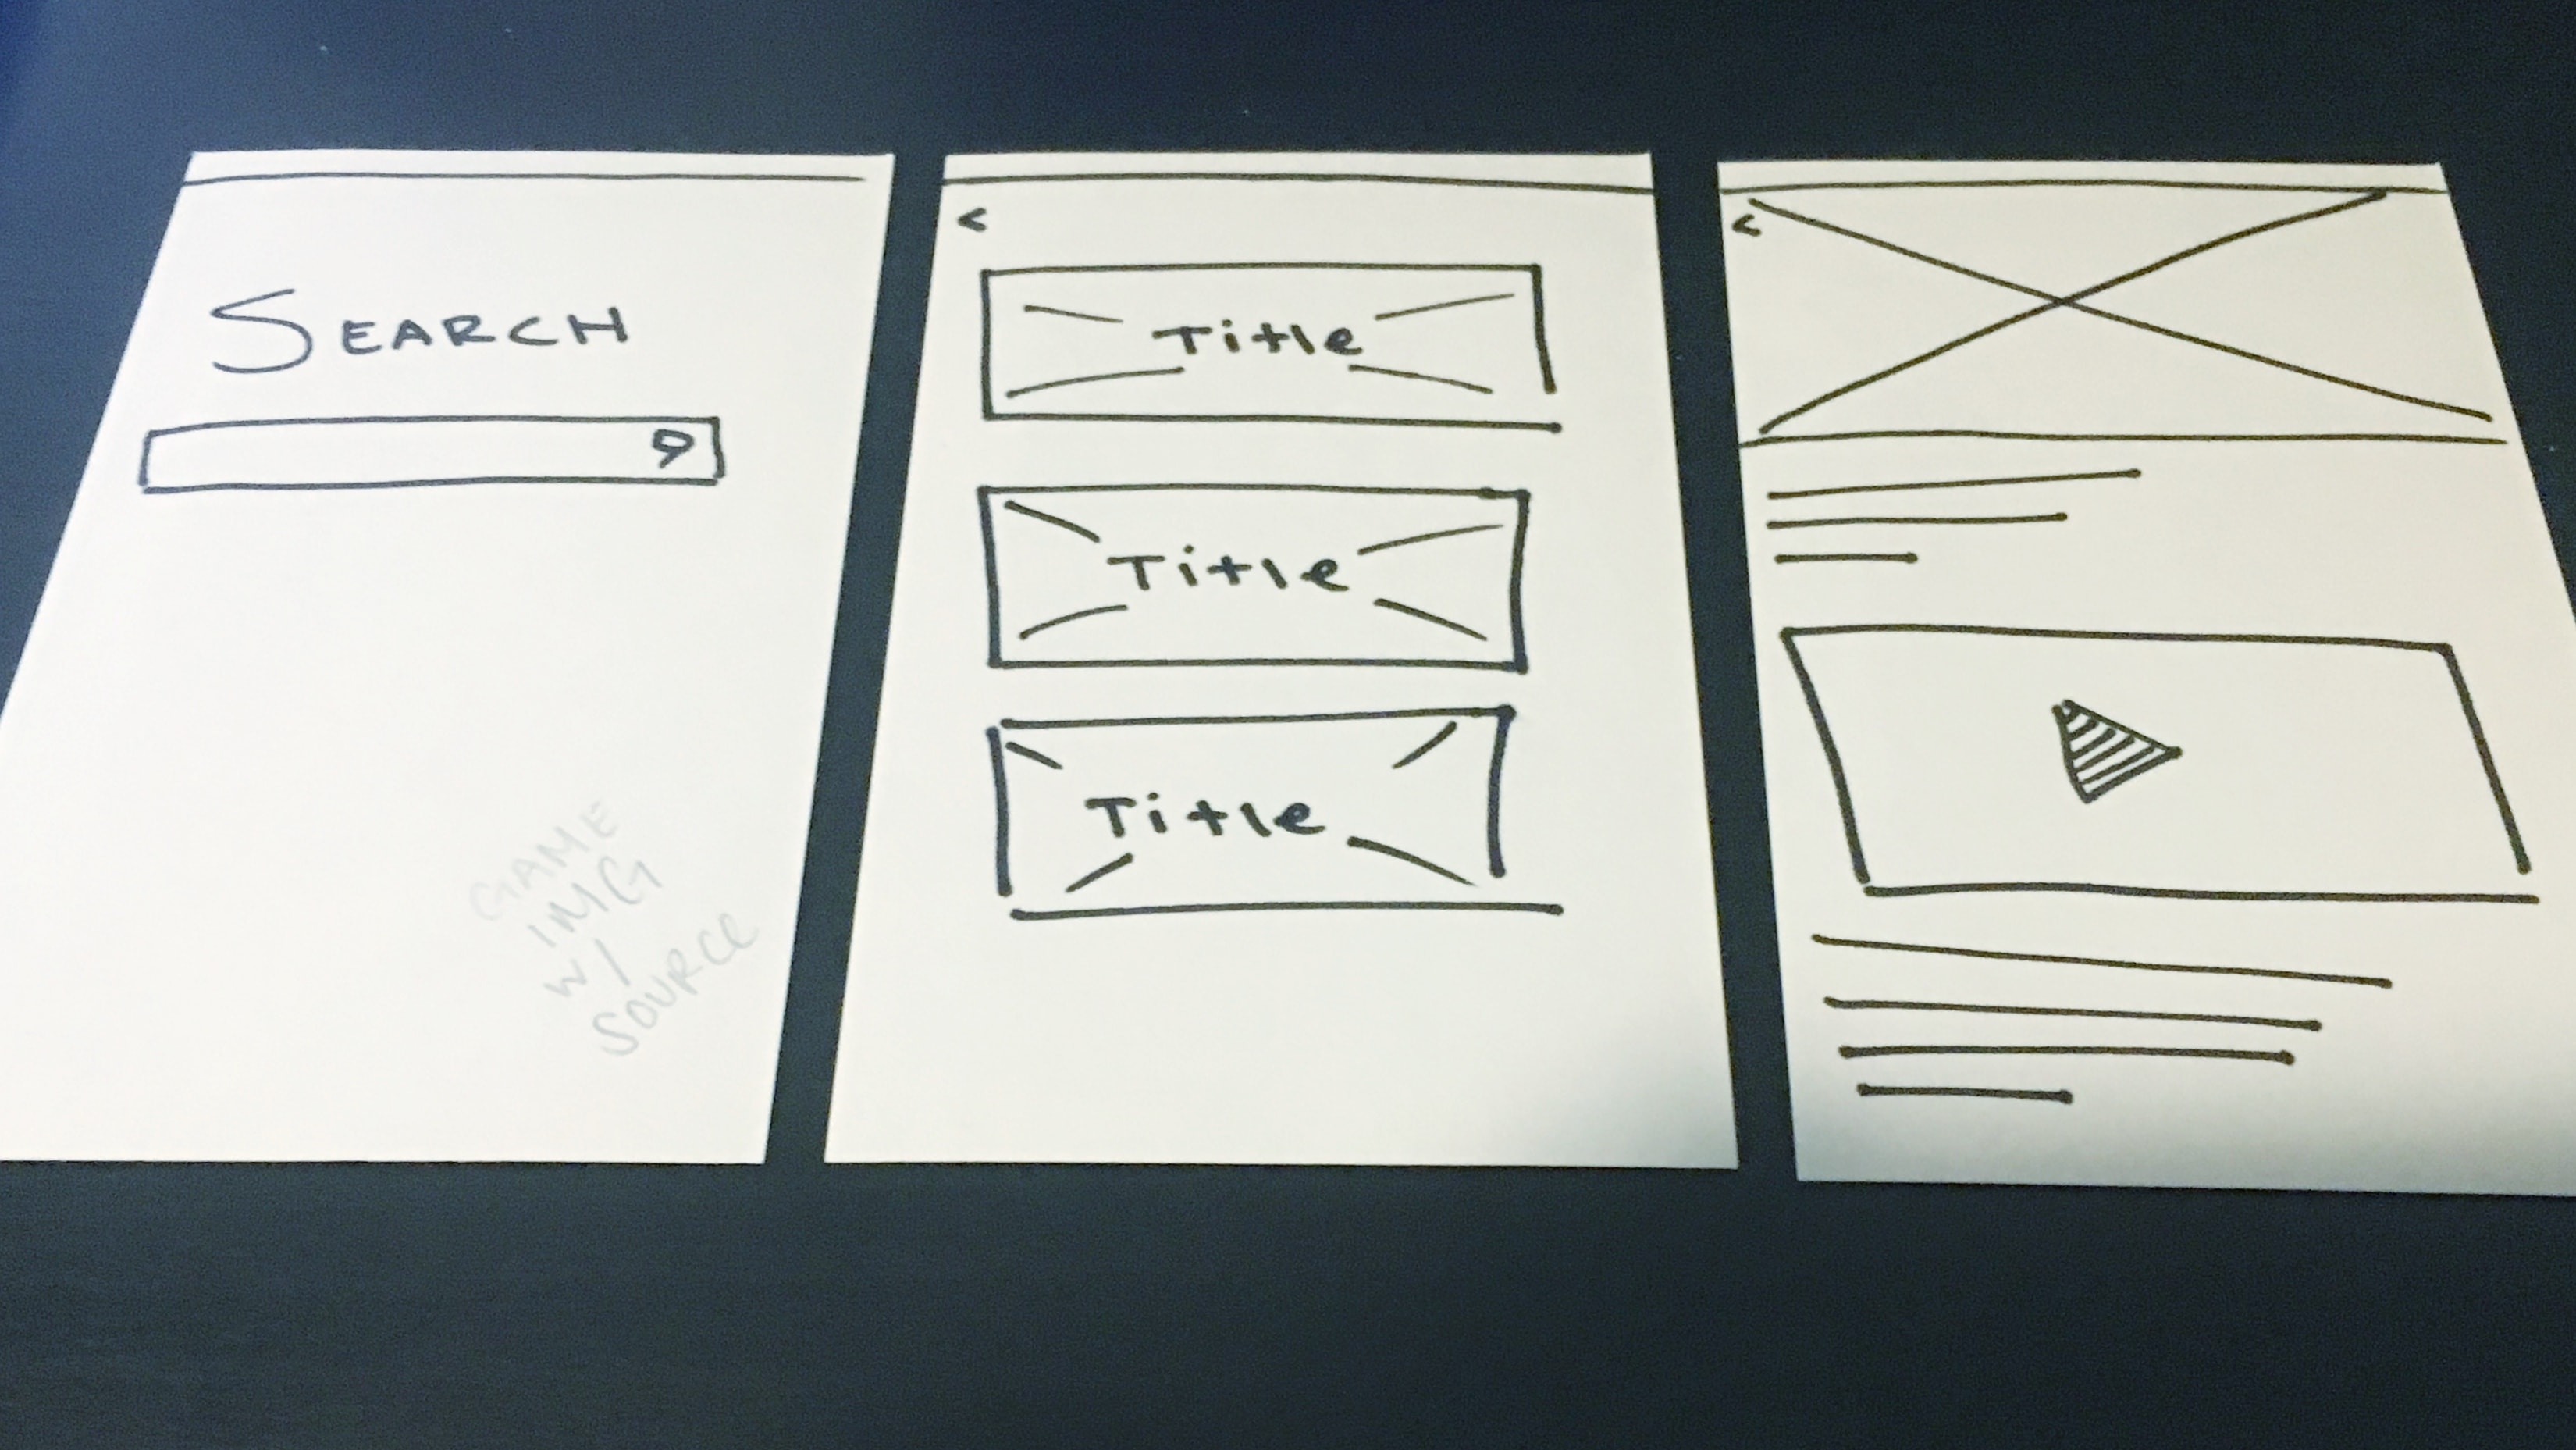 SEARCH
GAME
IMG
W/
SOURCE
<
Title
Title
Title
<